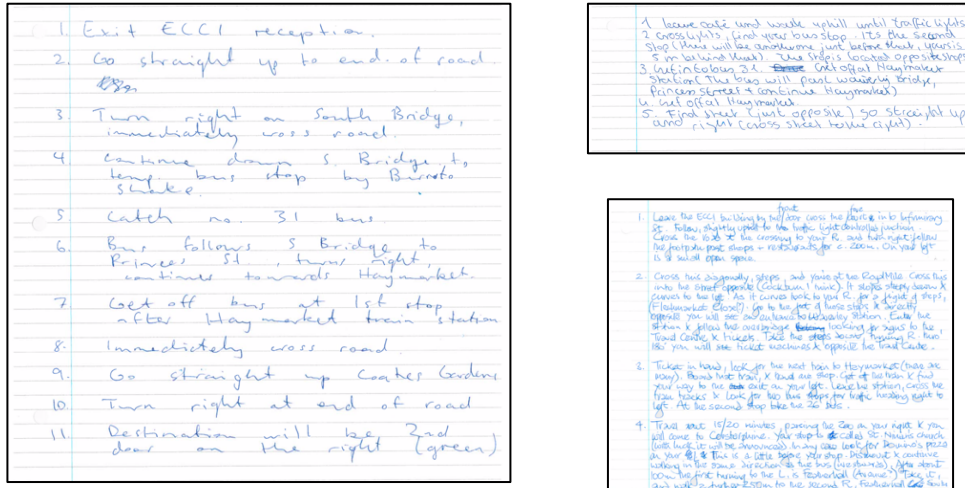 1. Exit ECCI reception.
2. Go straight up to end of road.
3 Turn right on South Bridge,
immediately cross road.
4. continue down S. Bridge to
temp. bus stop by
5 Catch no. 31 bus.
6. Bus follows S Bridge to
Princes St., turns right,
continues towards Haymarket.
7 Get off bus at 1st stop
after Haymarket train station
8. Immediately cross road.
9. Go straight up Coates Gardens
10. Turn right at end of road
11. Destination will be 2nd
door on the right (green)
1 leave café and walk uphill until traffic lights
2 cross lights, find your bus stop. It's the second
stop (there will be another one just before that, yours is
5 m behind that). The stop is located opposite shops
3 Get into bus 31. Get off at Haymarket
Station (The bus will past waverly bridge,
Princess street + continue Haymarket)
4. Get off at Haymarket.
5. Find street (just opposite) go straight up
and right (cross street to the right).
1. Leave the ECCI building by the front door cross the in to Infirmary
St. Follow, slightly uphill to the traffic light controlled junction.
Cross the road at the crossing to your R. and turn right follow
the footpath past shops + restaurants for c. 200m. On your left
is a small open space.
2. Cross this diagonally, steps, and you're at the Royal Mile. Cross this
into the street opposite (Cockburn I think). It slopes steeply down &
curves to the left. As it curves look to your R. for a flight of steps,
(Fleshmarket Close?). Go to the foot of these steps & directly
opposite you will see an entrance to Waverley Station. Enter the
station & follow the overbridge looking for signs to the
Travel Centre & tickets. Take the steps down, turning R. thro'
180° you will see ticket machines & opposite the Travel Centre.
3. Ticket in hand, look for the next train to Haymarket (there are
many). Board that train, & travel one stop. Get off the train & find
your way to the exit on your left. Leave the station, cross the
tram tracks & look for two bus stops for traffic heading right to
left. At the second stop take the 26 bus.
4. Travel about 15/20 minutes, passing the Zoo on your right & you
will come to Corstorphine. Your stop is called St. Ninian's church
(with luck it will be announced). In any case look for Domino's pizza
on your This is a little before your stop. Dismount & continue
walking in the same direction as the bus (westwards). After about
100m the first turning to the L. is Featherhall (Avenue). Take it,
and walk a further 250m to the second R, Featherhall